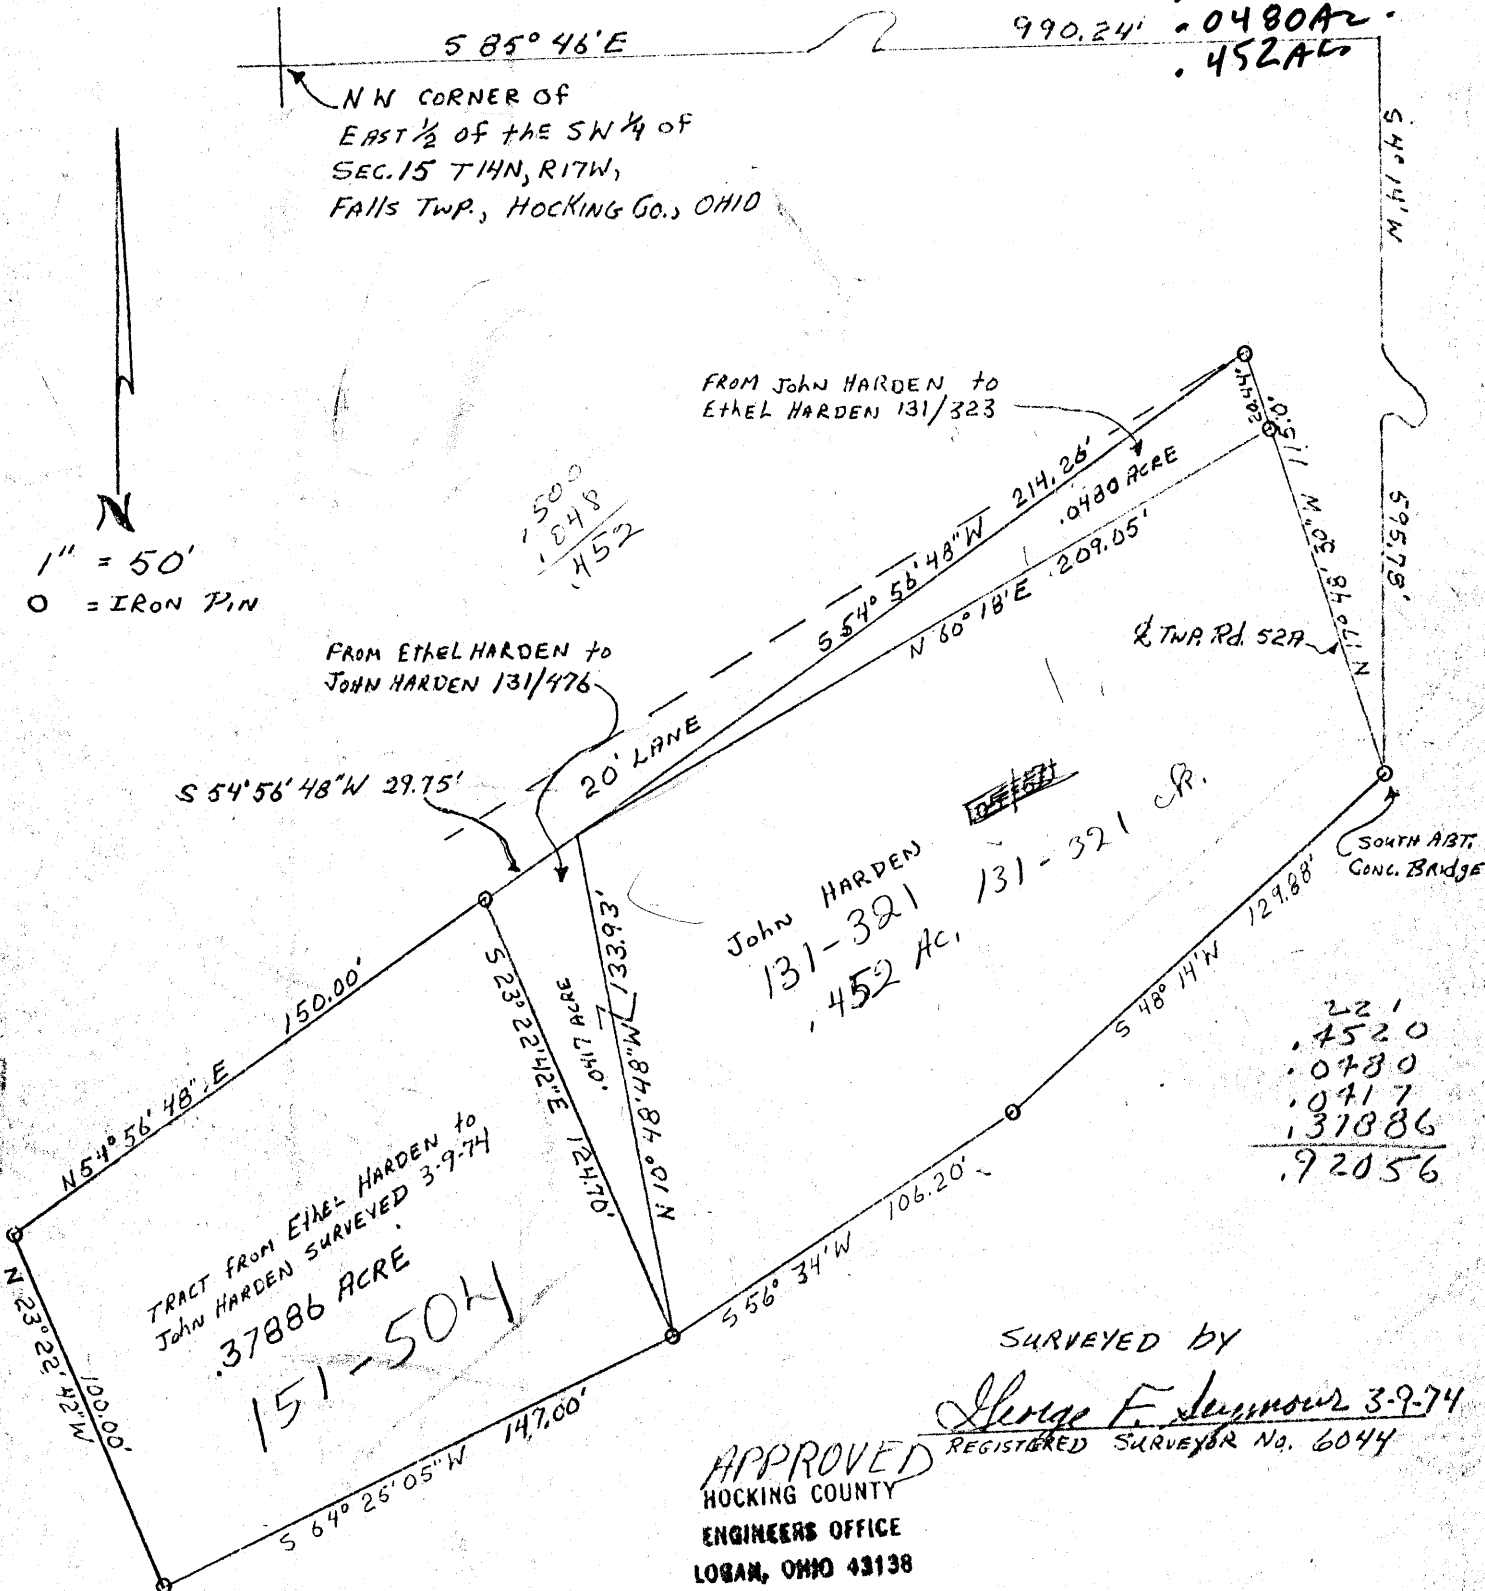 S 85° 46' E
990.24'
.0480 Ac.
.452 Ac.
NW CORNER OF
EAST ½ OF thE SW ¼ OF
SEC. 15 T14N, R17W,
FAllS TWP., HOCKING Co., OHIO
S 4° 14' W
595.78'
N
1" = 50'
O = IRON PIN
FROM JohN HARDEN to
EthEL HARDEN 131/323
.500
.048
.452
20.44'
115.0'
N 17° 48' 30" W
S 54° 56' 48" W 214.26'
.0480 ACRE
N 60° 18' E 209.05'
℄ TWP. Rd. 52A
FROM EthEL HARDEN to
JOHN HARDEN 131/476
20' LANE
S 54° 56' 48" W 29.75'
SOUTH ABT.
CONC. BRIdgE
JohN HARDEN
131-321 131-321
.452 Ac.
S 48° 14' W 129.88'
N 54° 56' 48" E 150.00'
S 23° 22' 42" E 124.70'
.0417 ACRE
N 10° 48' 48" W 133.93'
221
.4520
.0480
.0417
.37886
.92056
TRACT FROM EthEL HARDEN to
JohN HARDEN SURVEYED 3-9-74
.37886 ACRE
151-504
N 23° 22' 42" W 100.00'
S 56° 34' W 106.20'
S 64° 25' 05" W 147.00'
SURVEYED by
George F. Seymour 3-9-74
REGISTERED SURVEYOR No. 6044
APPROVED
HOCKING COUNTY
ENGINEERS OFFICE
LOGAN, OHIO 43138